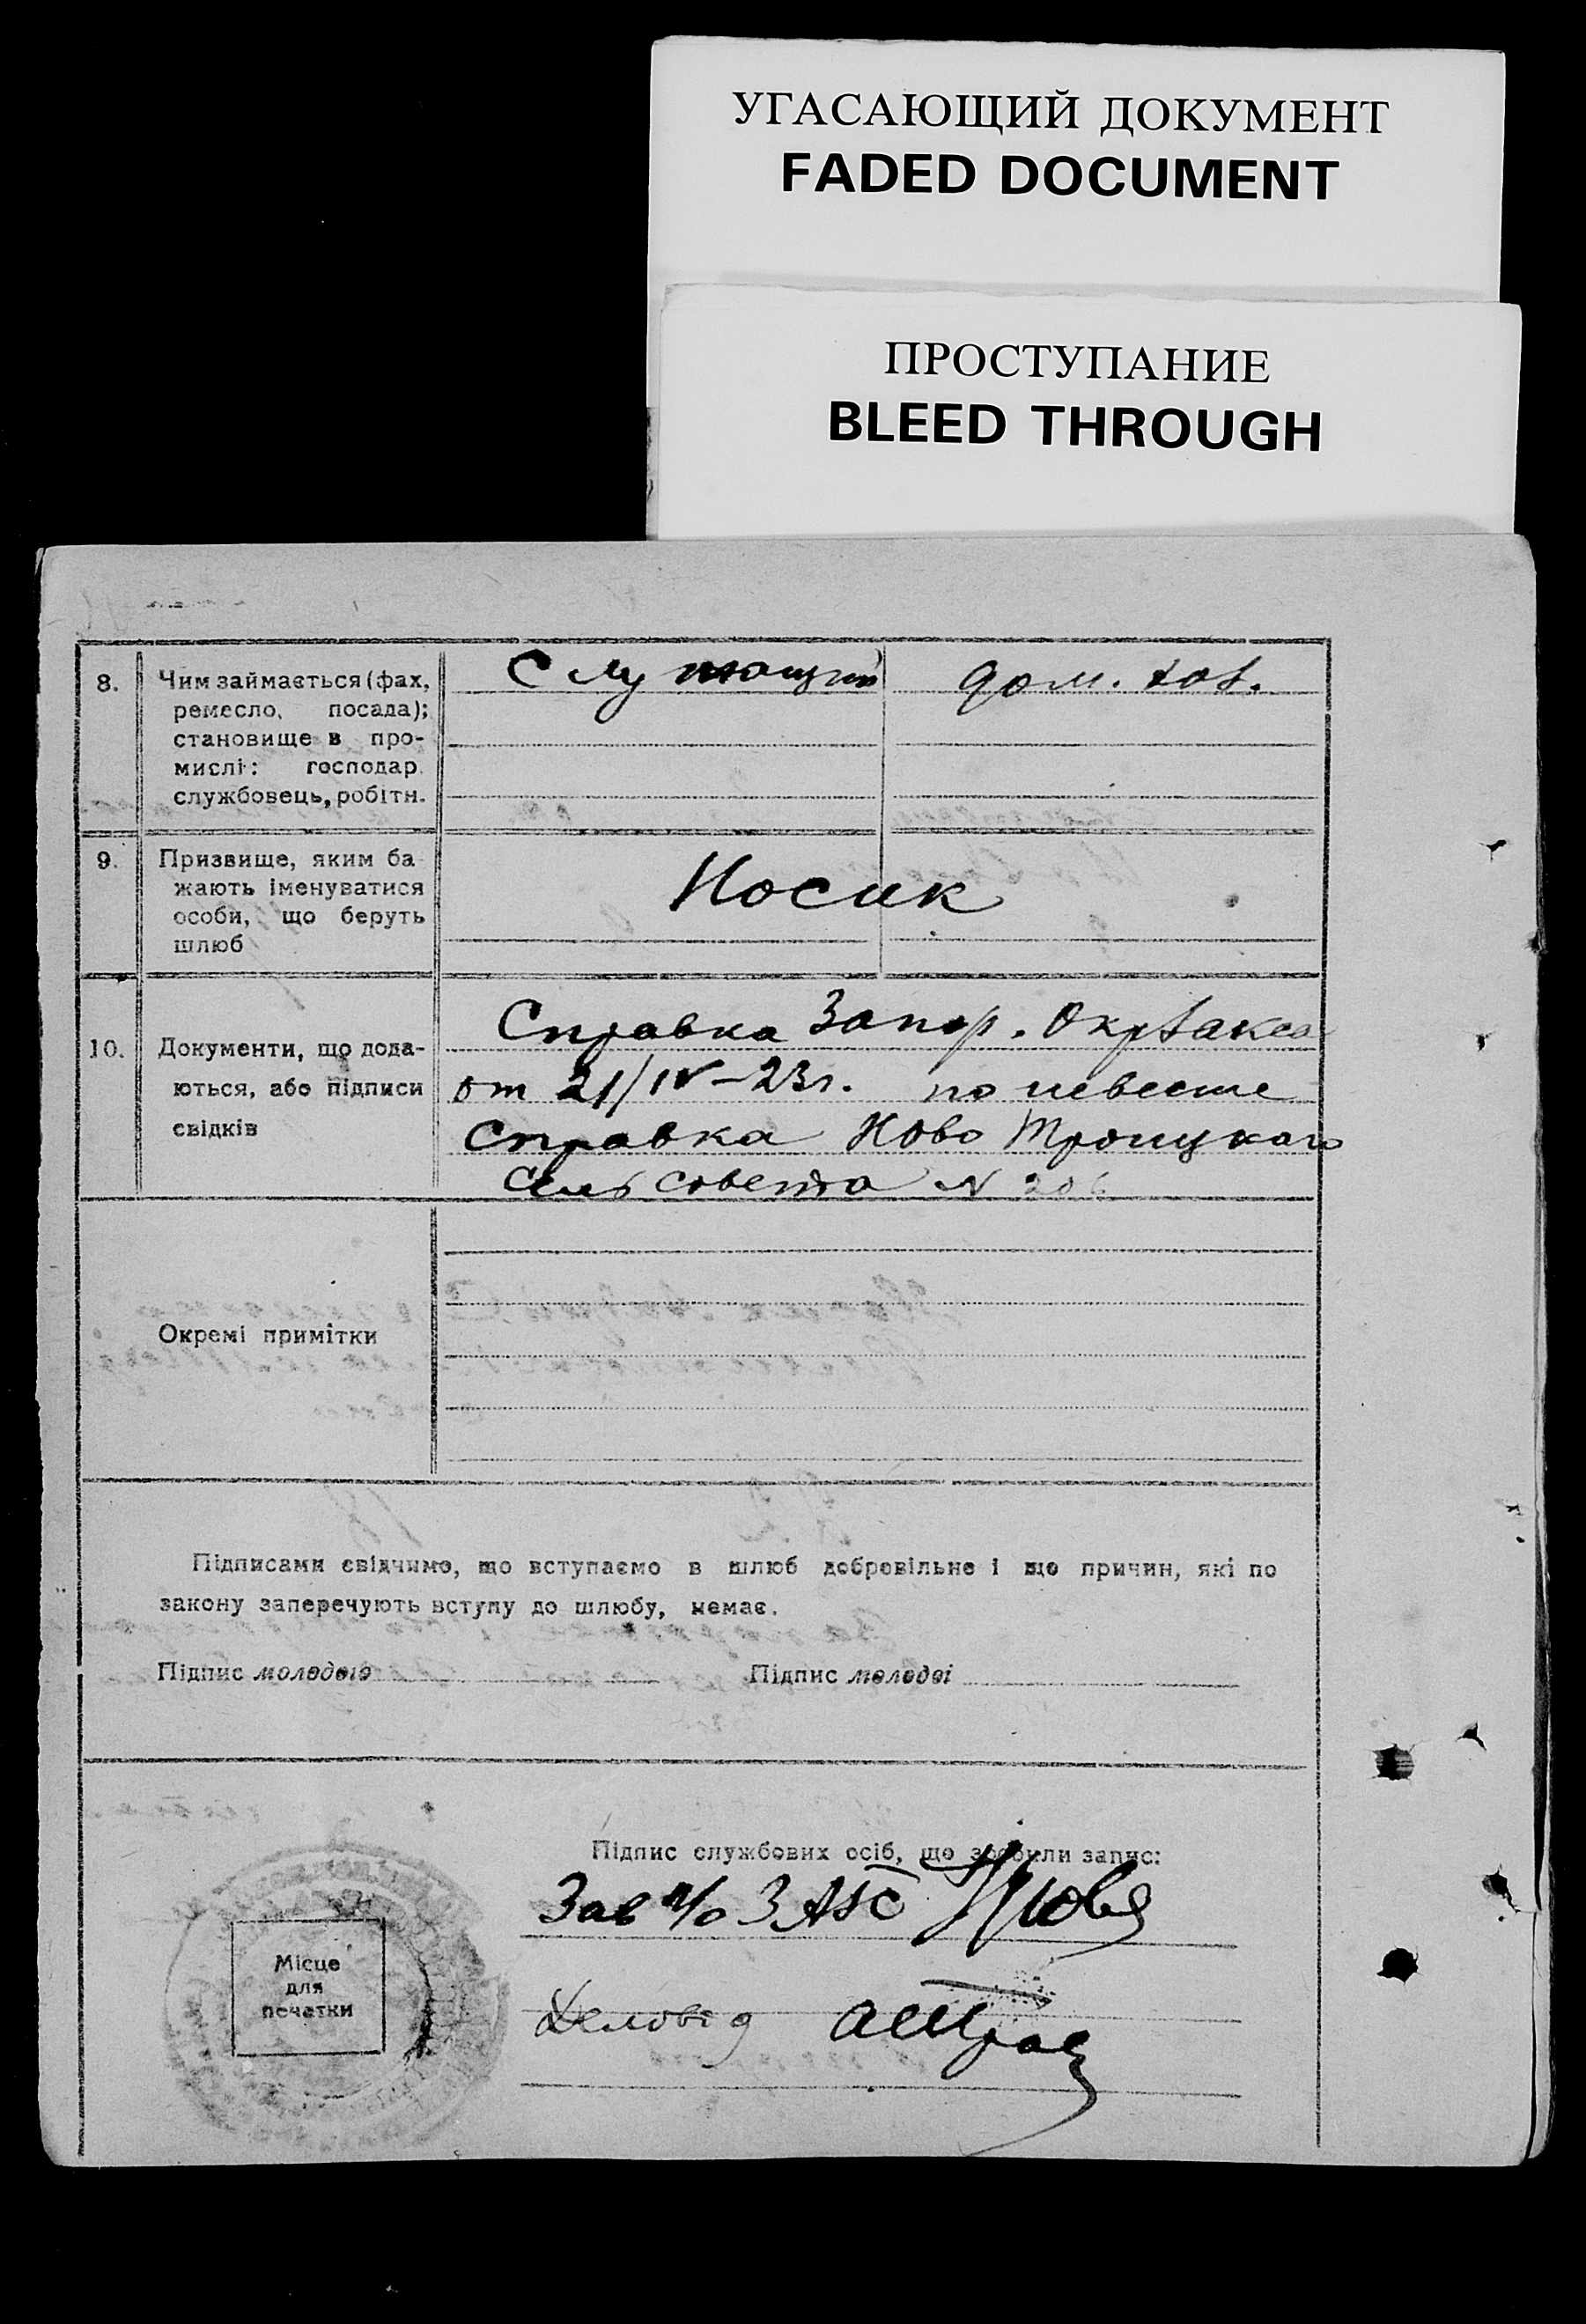 УГАСАЮЩИЙ ДОКУМЕНТ
FADED DOCUMENT
ПРОСТУПАНИЕ
BLEED THROUGH
8. Чим займається (фах, ремесло, посада); становище в про-мислі: господар. службовець, робітн.
Служащий
дом. хоз.
9. Призвище, яким ба-
жають іменуватися
особи, що беруть
шлюб
Носик
10. Документи, що дода-
ються, або підписи
свідків
Справка Запор.
от 21/IV–23г. по невесте
Справка Ново Троицкаго
Сельсовета N 206
Окремі примітки
Підписами свідчимо, що вступаємо в шлюб добровільне і що причин, які по
закону заперечують вступу до шлюбу, немає.
Підпис молодого Підпис молодої
Підпис службових осіб, що зробили запис:
Зав п/о ЗАГС
Діловод
Місце
для
печатки